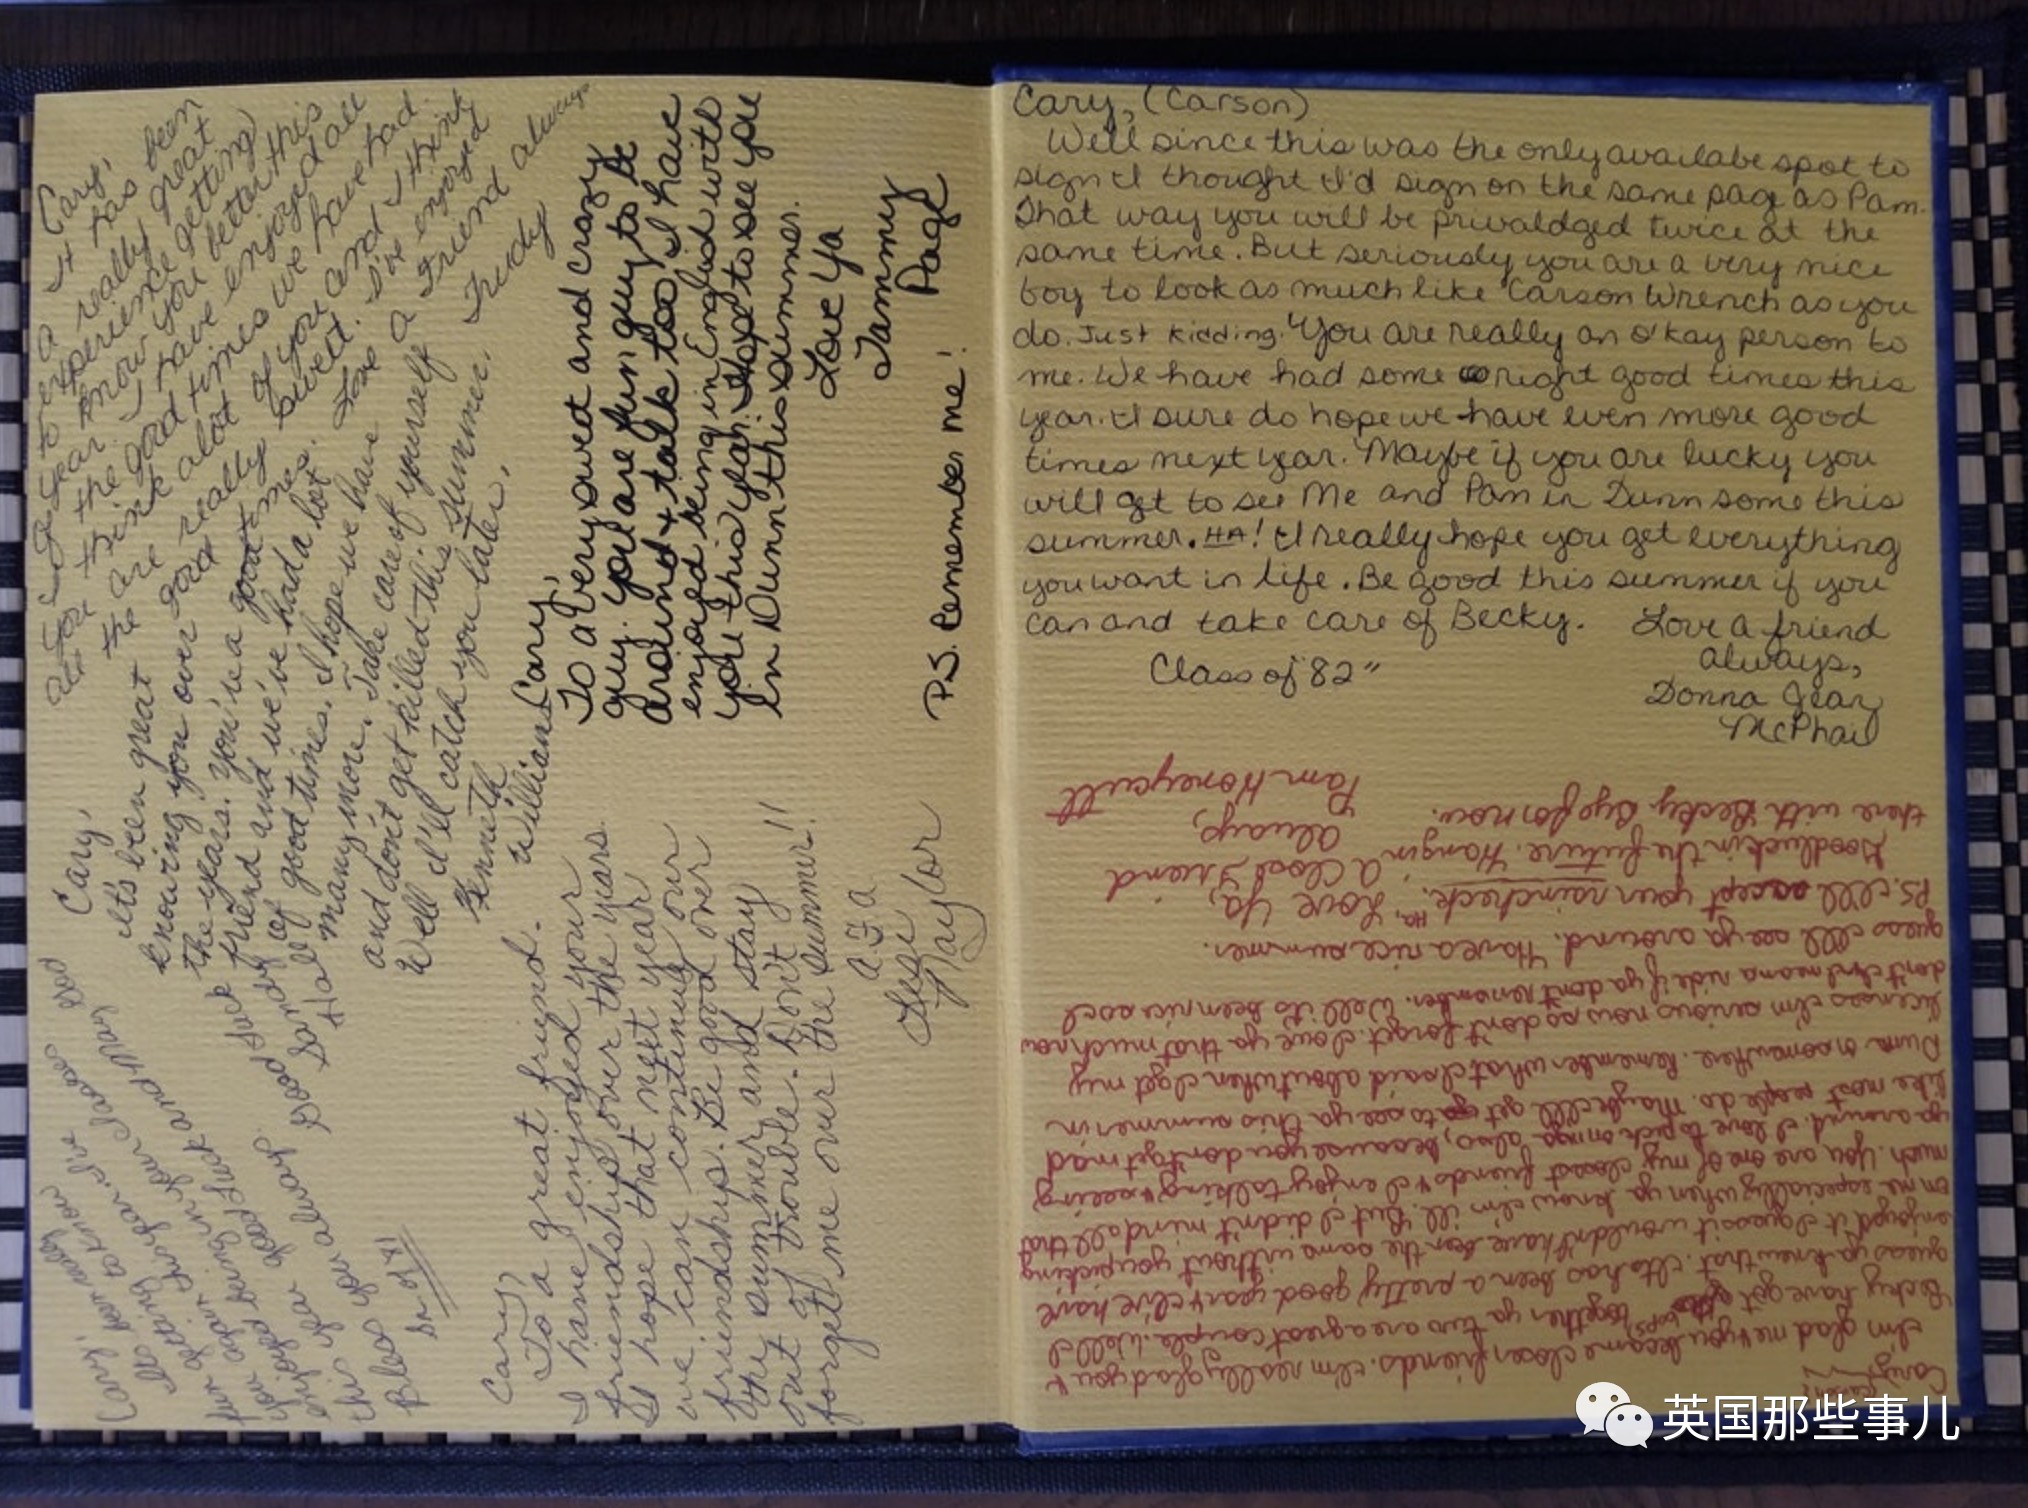 Cary,
It has been
a really great
experience getting
to know you better this
year. I have enjoyed all
the good times we have had.
I think alot of you and I think
you are really sweet. I've enjoyed
all the good times.
Love a Friend always
Trudy
Cary,
It's been great
knowing you over
the years. You're a good
friend and we've had a lot
of good times. I hope we have
many more. Take care of yourself
and don't get killed this summer.
Well I'll catch you later,
Kenneth
Williams
Good Luck
Sandy
Hall
Cary,
To a very sweet and crazy
guy. You are fun guy to be
around & talk too. I have
enjoyed being in English with
you this year. Hope to see you
in Dunn this summer.
Love Ya
Tammy
Page
P.S. Remember me!
Cary,
To a great friend.
I have enjoyed your
friendship over the years.
I hope that next year
we can continue our
friendships. Be good over
the summer and stay
out of trouble. Don't
forget me over the summer!!
A.F.A.
Naylor
Cary,
getting to know
your good Luck and May God
Bless you always.
Sr of 41
Cary, (Carson)
Well since this was the only availabe spot to
sign I thought I'd sign on the same page as Pam.
That way you will be privaldged twice at the
same time. But seriously you are a very nice
boy to look as much like Carson Wrench as you
do. Just kidding. You are really an o'kay person to
me. We have had some right good times this
year. I sure do hope we have even more good
times next year. Maybe if you are lucky you
will get to see Me and Pam in Dunn some this
summer. HA! I really hope you get everything
you want in life. Be good this summer if you
can and take care of Becky. Love a friend
always,
Class of "82" Donna Jean
McPhail
Cary,
I'm glad me & you became closer friends. I'm really glad you &
Becky have got together ya two are a great couple. Well I
guess ya knew that. It's has been a pretty good year & I've have
enjoyed it I guess it wouldn't have been the same without you picking
on me especially when ya know I'm ill. But I didn't mind all that
much. You are one of my closest friends & I enjoy talking & seeing
ya around. I love to pick on ya also, because you don't get mad
like most people do. Maybe I'll get to see ya this summer in
Dunn or somewhere. Remember what I said about when I get my
licenses I'm serious now so don't forget. I owe ya that much now
don't I mean a ride if ya don't remember. Well its been nice so I
guess I'll see ya around. Have a nice summer.
P.S. I'll accept your raincheck. Ha, Love Ya,
Goodluck in the future. Hang in A Close Friend
there with Becky. Bye for now. Always,
Pam Honeycutt
英国那些事儿